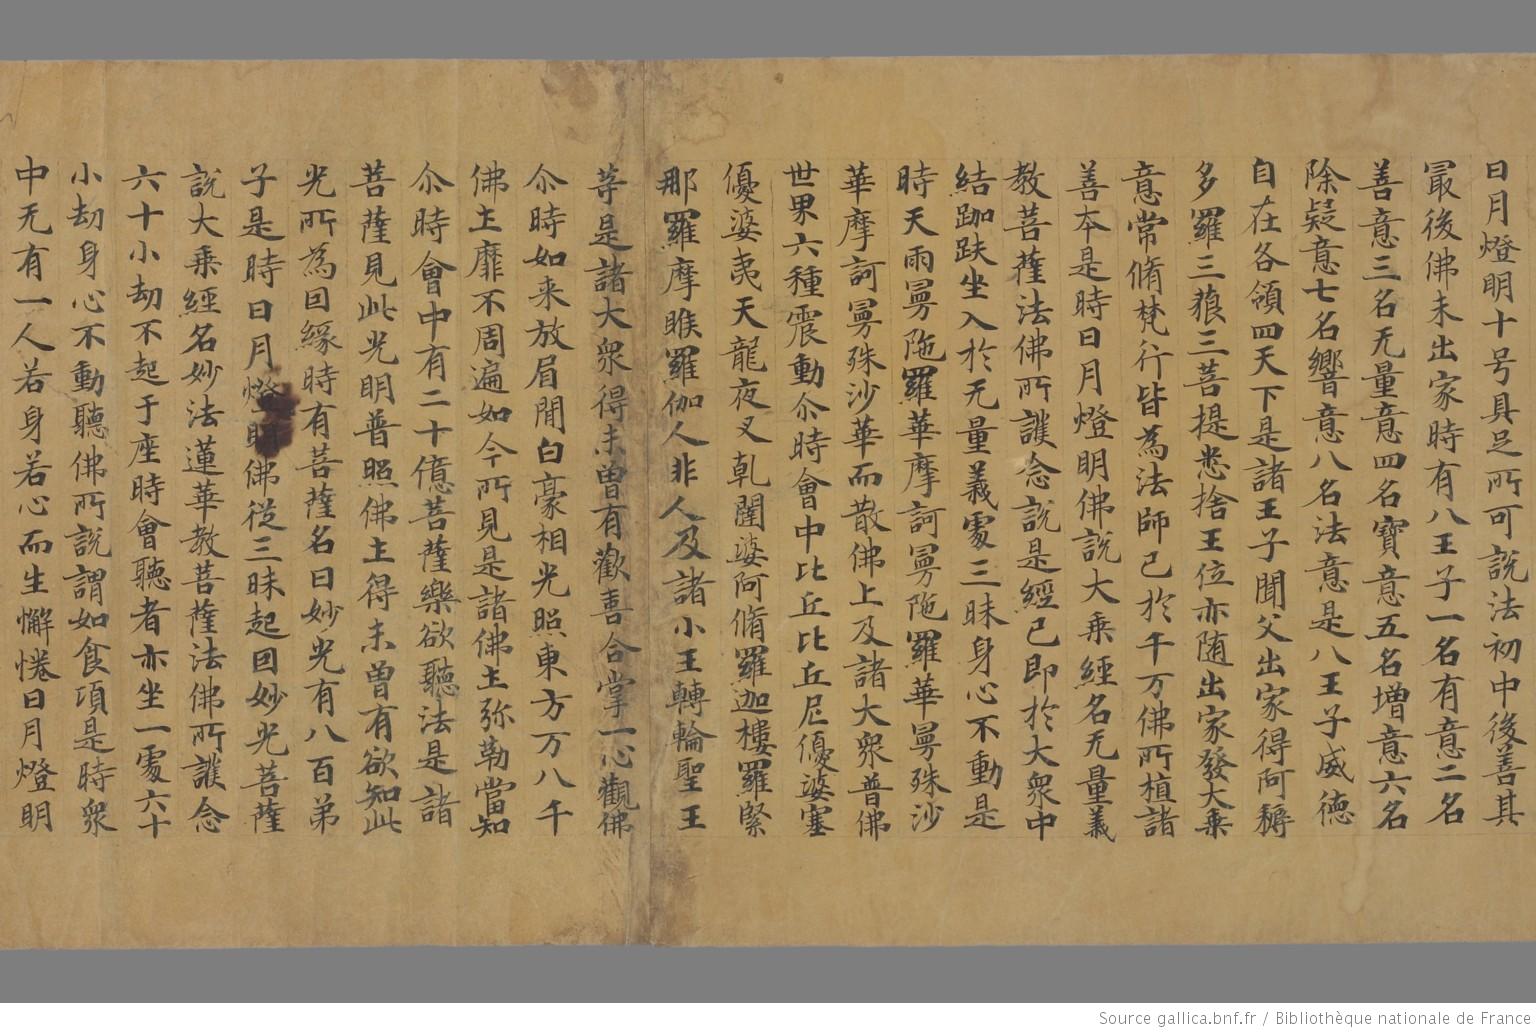 日月燈明十号具足所可說法初中後善其
最後佛未出家時有八王子一名有意二名
善意三名无量意四名寶意五名增意六名
除疑意七名響意八名法意是八王子威德
自在各領四天下是諸王子聞父出家得阿耨
多羅三藐三菩提悉捨王位亦随出家發大乗
意常脩梵行皆為法師已於千万佛所植諸
善本是時日月燈明佛說大乗經名无量義
教菩薩法佛所護念說是經已即於大衆中
結跏趺坐入於无量義處三昧身心不動是
時天雨曼陁羅華摩訶曼陁羅華曼殊沙
華摩訶曼殊沙華而散佛上及諸大衆普佛
世界六種震動尒時會中比丘比丘尼優婆塞
優婆夷天龍夜叉乹闥婆阿脩羅迦樓羅緊
那羅摩睺羅伽人非人及諸小王轉輪聖王
等是諸大衆得未曽有歡喜合掌一心觀佛
尒時如来放眉間白豪相光照東方万八千
佛土靡不周遍如今所見是諸佛土弥勒當知
尒時會中有二十億菩薩樂欲聽法是諸
菩薩見此光明普照佛土得未曽有欲知此
光所為因緣時有菩薩名曰妙光有八百弟
子是時日月燈明佛從三昧起因妙光菩薩
說大乗經名妙法蓮華教菩薩法佛所護念
六十小劫不起于座時會聽者亦坐一處六十
小劫身心不動聽佛所說謂如食項是時衆
中无有一人若身若心而生懈惓日月燈明
Source gallica.bnf.fr / Bibliothèque nationale de France